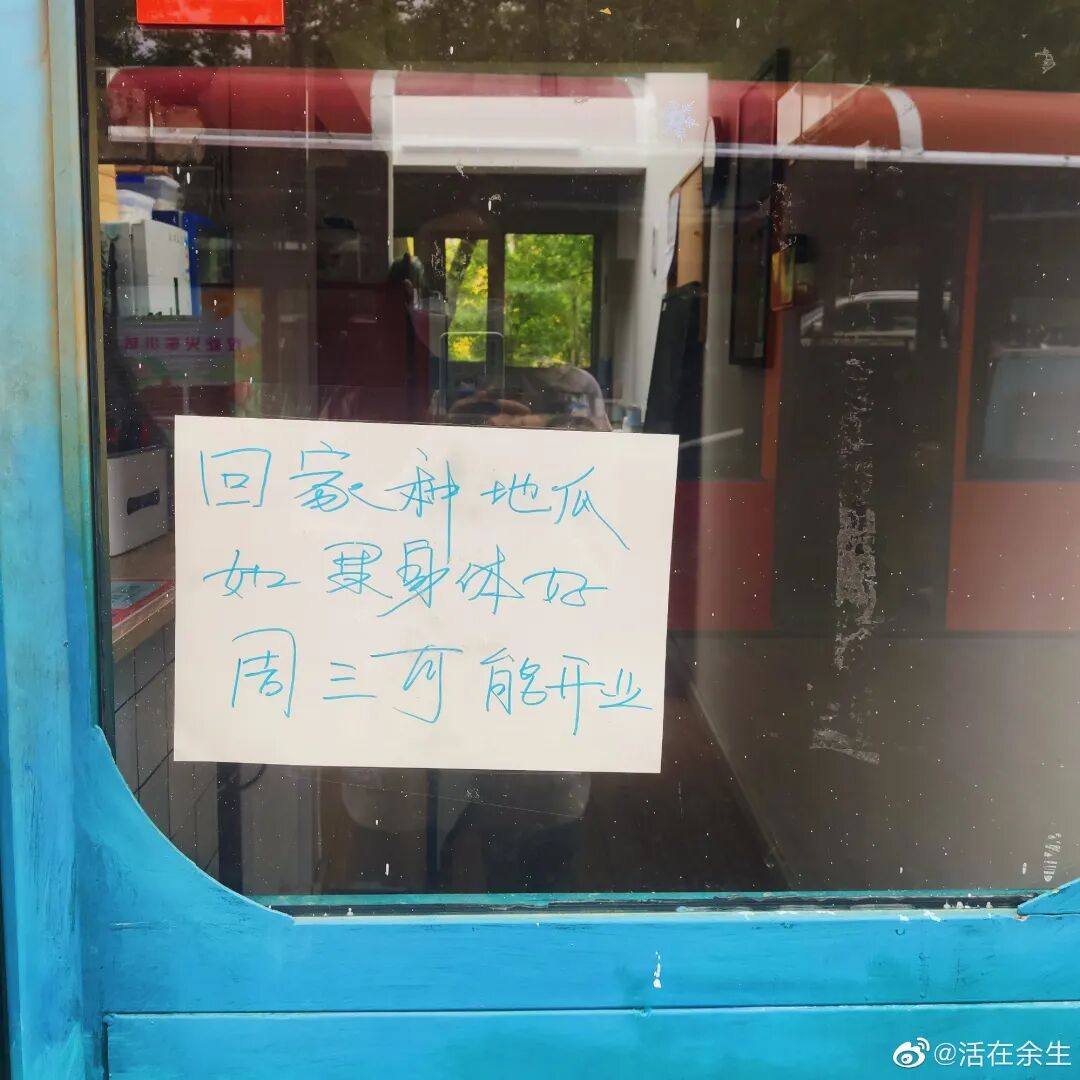 回家种地瓜
如果身体好
周三可能开业
@活在余生